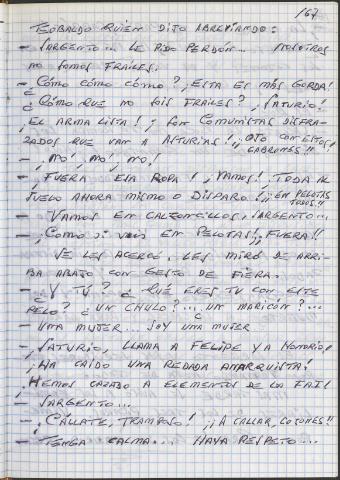 167
TEOBALDO QUIEN DIJO ABREVIANDO:
- SARGENTO... LE PIDO PERDÓN... NOSOTROS
NO SOMOS FRAILES.
- ¿CÓMO CÓMO CÓMO?, ¡ESTA ES MÁS GORDA!
¿CÓMO QUE NO SOIS FRAILES? ¡SATURIO!
¡EL ARMA LISTA! ¡SON COMUNISTAS DISFRA-
ZADOS QUE VAN A ASTURIAS! ¡¡OJO CON ESTOS,
CABRONES!!
- ¡NO!, ¡NO!, ¡NO!
- ¡FUERA ESA ROPA! ¡VAMOS! ¡TODA AL
SUELO AHORA MISMO O DISPARO! ¡¡EN PELOTAS
TODOS!!
- VAMOS EN CALZONCILLOS, SARGENTO...
- ¡COMO SI VAIS EN PELOTAS! ¡¡FUERA!!
SE LES ACERCÓ. LES MIRÓ DE ARRI-
BA ABAJO CON GESTO DE FIERA.
- ¿Y TU? ¿QUÉ ERES TU CON ESTE
PELO? ¿UN CHULO?... ¿UN MARICÓN?...
- UNA MUJER... SOY UNA MUJER
- ¡SATURIO, LLAMA A FELIPE Y A HONORIO!
¡HA CAÍDO UNA REDADA ANARQUISTA!
¡HEMOS CAZADO A ELEMENTOS DE LA FAI!
- SARGENTO...
- ¡CÁLLATE, TRAMPOSO! ¡¡A CALLAR, COJONES!!
- TENGA CALMA... HAYA RESPETO...